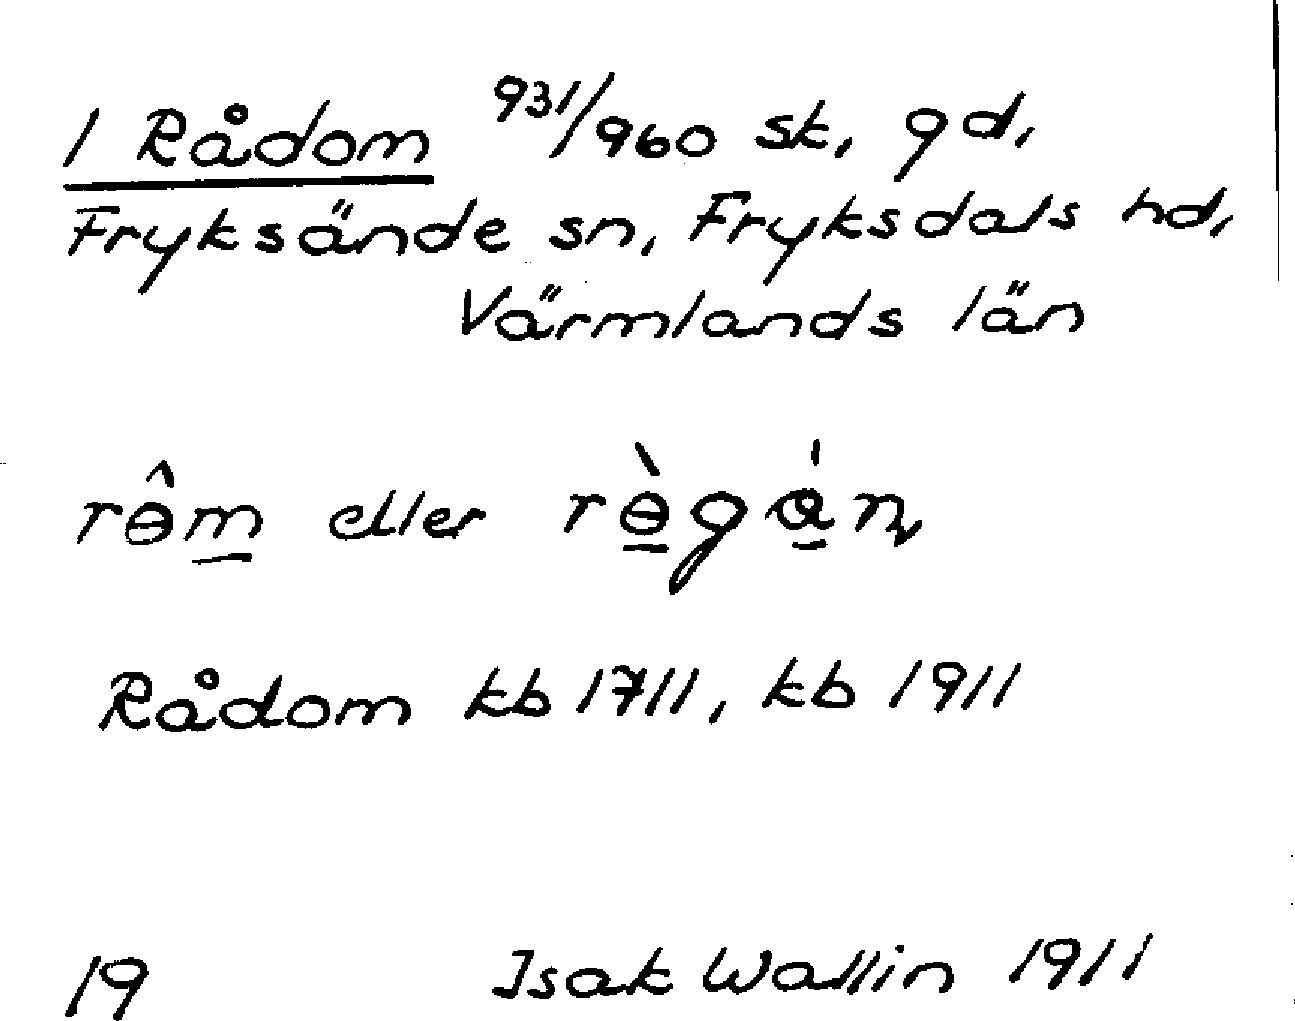 1 Rådom 931/960 sk, gd,
Fryksände sn, Fryksdals hd,
Värmlands län
rɵ̂m eller rɵ̀gán
Rådom kb 1711, kb 1911
19 Isak Wallin 1911